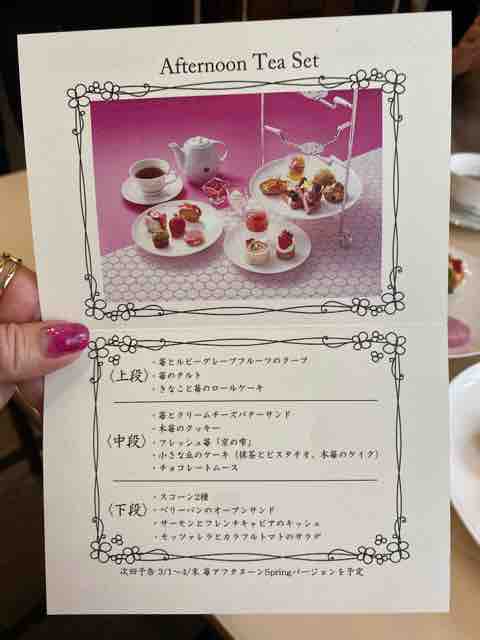 Afternoon Tea Set
〈上段〉
・苺とルビーグレープフルーツのクープ
・苺のタルト
・きなこと苺のロールケーキ
〈中段〉
・苺とクリームチーズバターサンド
・木苺のクッキー
・フレッシュ苺「京の雫」
・小さな丘のケーキ（抹茶とピスタチオ、木苺のケイク）
・チョコレートムース
〈下段〉
・スコーン2種
・ベリーパンのオープンサンド
・サーモンとフレンチキャビアのキッシュ
・モッツァレラとカラフルトマトのサラダ
次回予告 3/1～4/末 苺アフタヌーンSpringバージョンを予定